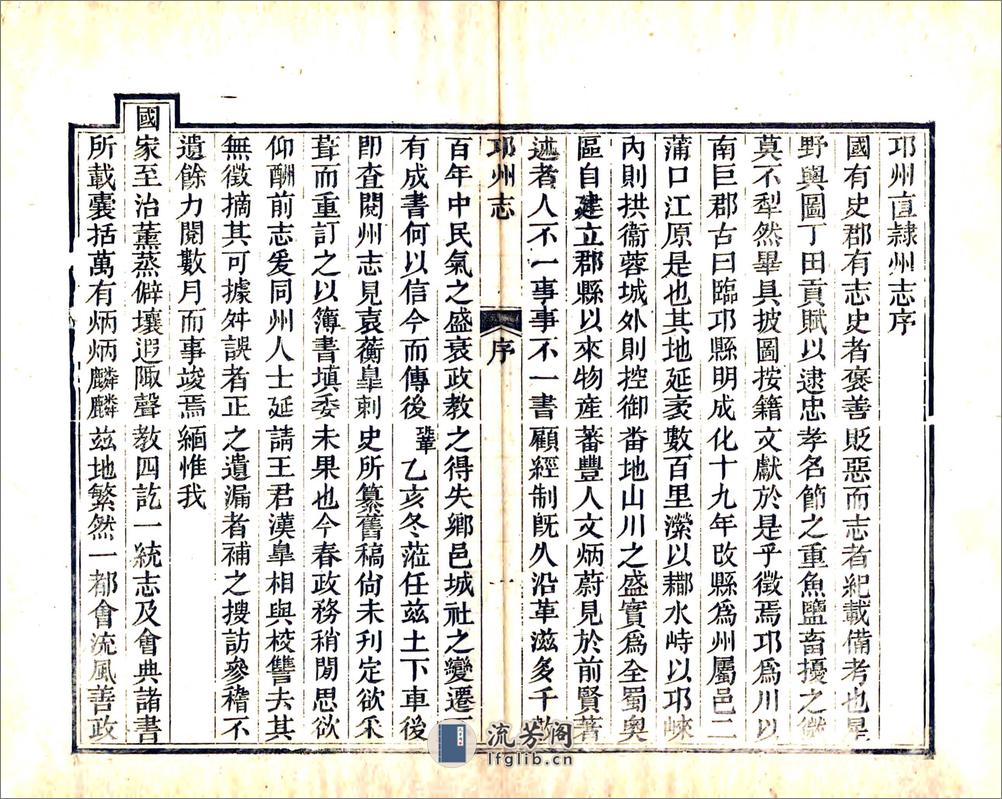 邛州直隷州志序
國有史郡有志史者褒善貶惡而志者紀載備考也星
野輿圖丁田貢賦以逮忠孝名節之重魚鹽畜擾之微
莫不犁然畢具披圖按籍文獻於是乎徵焉邛爲川以
南巨郡古曰臨邛縣明成化十九年改縣爲州屬邑二
蒲口江原是也其地延袤數百里瀠以𨞬水峙以邛崍
內則拱衞蓉城外則控御畨地山川之盛實爲全蜀奥
區自建立郡縣以來物産蕃豐人文炳蔚見於前賢著
述者人不一事事不一書顧經制旣久沿革滋多千
邛州志
序
一
百年中民氣之盛衰政教之得失鄉邑城社之變遷
有成書何以信今而傳後鞏乙亥冬蒞任兹土下車後
即查閱州志見袁蘅臯刺史所纂舊稿尙未刋定欲釆
葺而重訂之以簿書填委未果也今春政務稍閒思欲
仰酬前志爰同州人士延請王君漢臯相與校讐去其
無徵摘其可據舛誤者正之遺漏者補之搜訪參稽不
遺餘力閱數月而事竣焉緬惟我
國家至治薰蒸僻壤遐陬聲教四訖一統志及會典諸書
所載囊括萬有炳炳麟麟兹地繁然一都會流風善政
流芳阁
lfglib.cn